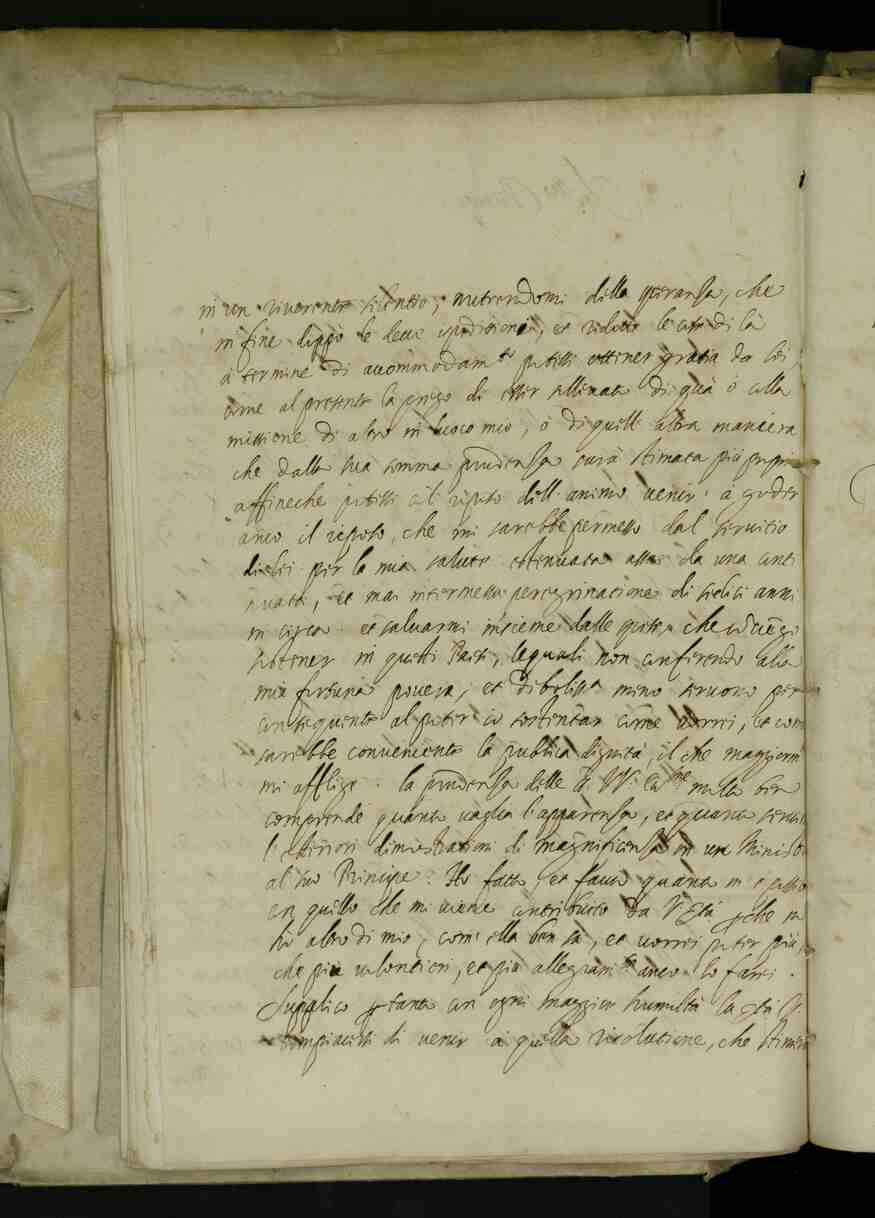 in un riverente silentio, nutrendomi della speranza, che
in fine doppò le lette speditioni, et ridotte le cose di là
à termine di accommodam.to potessi ottener gratia da lei,
come al presente la prego di esser sollevato di quà ò colla
missione di altro in luoco mio, ò di quell' altra maniera
che dalla sua somma prudenza sarà stimata più propria
affineche potessi col riposo dell' animo venir à goder
anco il riposo, che mi sarebbe permesso dal servitio
di lei per la mia salute estenuata assai da una conti
nuata, et mai intermessa peregrinatione di sedici anni
in circa et salvarmi insieme dalle spese che convengo
sostener in questi Paesi, lequali non conferendo alla
mia fortuna povera, et deboliss.a meno servono per
consequente al poter io sostentar come vorrei, et come
sarebbe conveniente la publica dignità, il che maggiorm
mi afflige. la prudenza delle VV. molto ben
comprende quanto vaglia l'apparenza, et quanto servi
l'esteriori dimostrationi di magnificenza in un Ministro
al suo Principe. Ho fatto, et faccio quanto m'è posso
con quello che mi viene contribuito da V. Stà che n
hò altro di mio, come ella ben sa, et vorrei poter più,
che più volontieri, et più allegram.te anco lo farei.
Supplico pertanto con ogni maggior humiltà la Stà V.
compiacersi di venir à quella risolutione, che stimerà